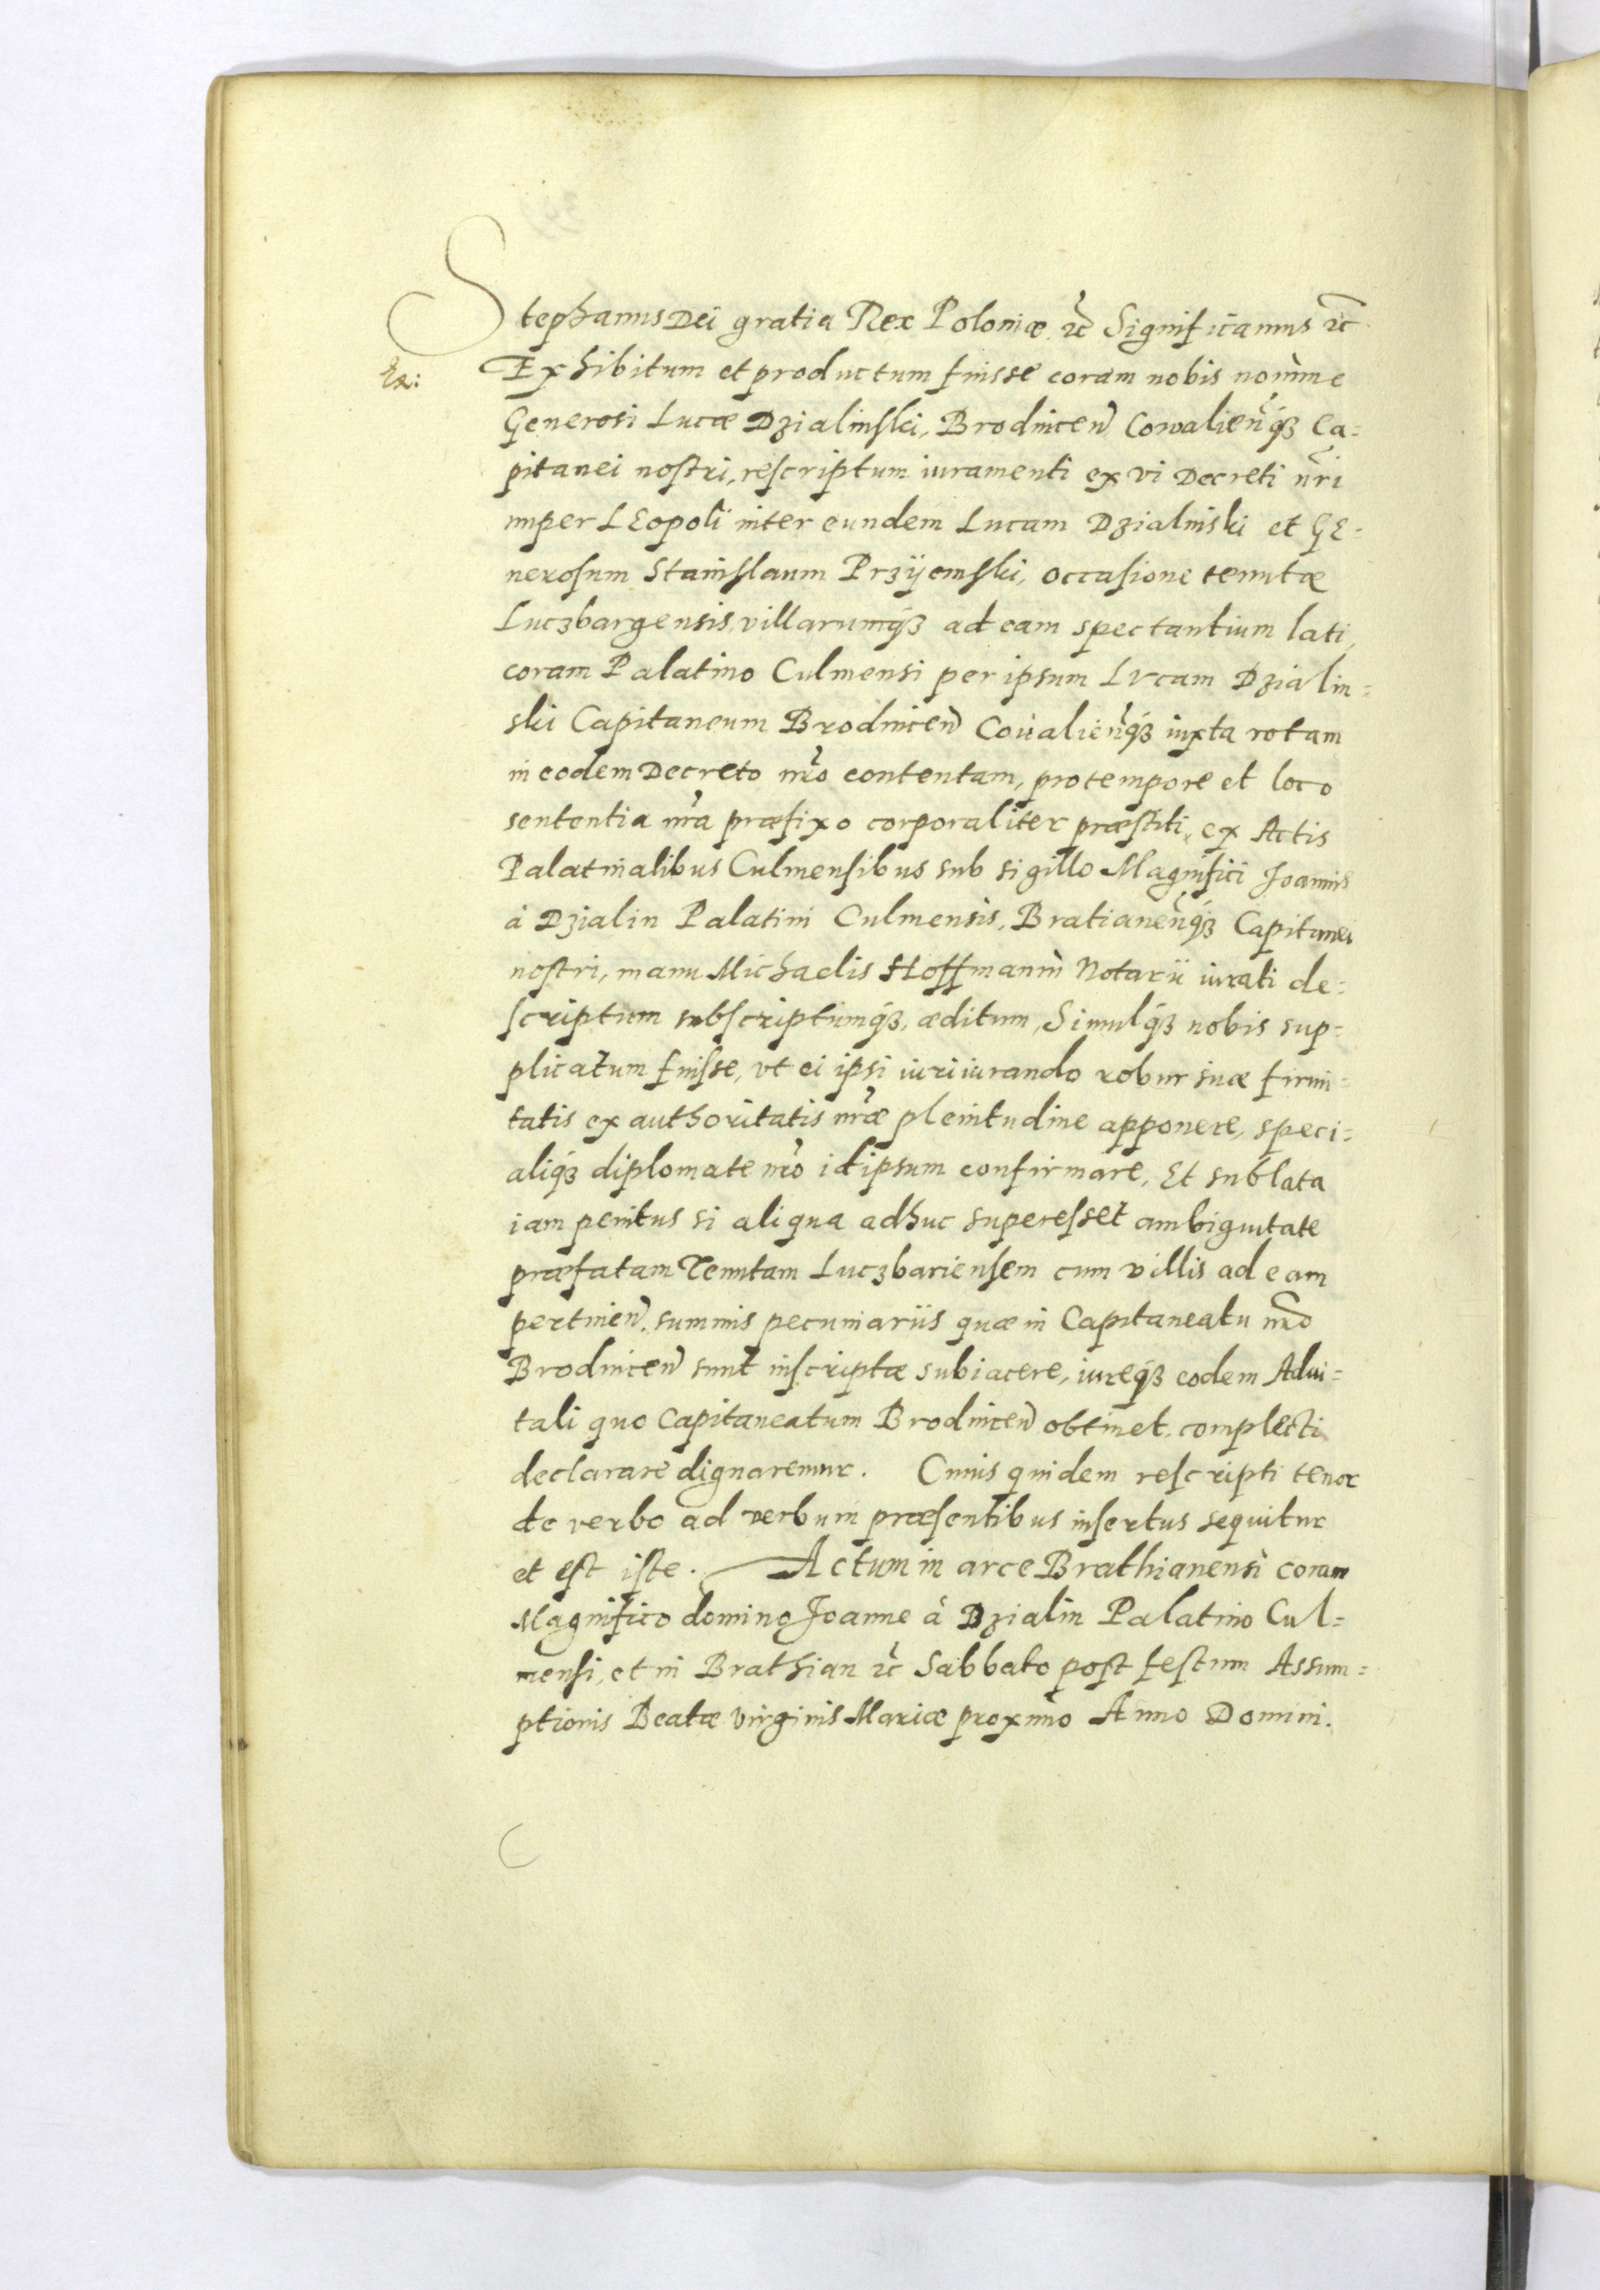 Stephanus Dei gratia Rex Poloniæ ꝛc̃ Significamus ꝛc̃
Ex:
Exhibitum et productum fuisse coram nobis nomine
Generosi Lucæ Dzialinski, Brodnicen̄ Cowalien̄q́ꝫ Ca=
pitanei nostri, rescriptum iuramenti ex vi Decreti nr̃i
nuper LEopoli inter eundem Lucam Dzialinski et GE=
nerosum Stanislaum Przÿemski, occasione tenutæ
Luczbargensis, villarumq́ꝫ ad eam spectantium lati,
coram Palatino Culmensi per ipsum Lucam Dzialin=
ski Capitaneum Brodnicen̄ Coualien̄q́ꝫ iuxta rotam
in eodem Decreto nr̃o contentam, pro tempore et loco
sententia nr̃a præfixo corporaliter præstiti, ex Actis
Palatinalibus Culmensibus sub sigillo Magnifici Joannis
à Dzialin Palatini Culmensis, Bratianen̄q́ꝫ Capitanei
nostri, manu Michaelis Hoffmannin Notarii iurati de=
scriptum subscriptumq́ꝫ, æditum, Simulq́ꝫ nobis sup=
plicatum fuisse, vt ei ipsi iuriiurando robur suæ firmi=
tatis ex authoritatis nr̃æ plenitudine apponere, speci=
aliq́ꝫ diplomate nr̃o id ipsum confirmare, Et sublata
iam penitus si aliqua adhuc superesset ambiguitate
præfatam Tenutam Luczbariensem cum villis ad eam
pertinen̄, summis pecuniariis quæ in Capitaneatu nr̃o
Brodnicen̄ sunt inscriptæ subiacere, iureq́ꝫ eodem Adui=
tali quo Capitaneatum Brodnicen̄ obtinet, complecti
declarare dignaremur. Cuius quidem rescripti tenor
de verbo ad verbum præsentibus insertus sequitur
et est iste. Actum in arce Brathianensi coram
Magnifico domino Joanne à Dzialin Palatino Cul=
mensi, et in Brathian ꝛc̃ Sabbato post festum Assum=
ptionis Beatæ Virginis Mariæ proximo Anno Domini.